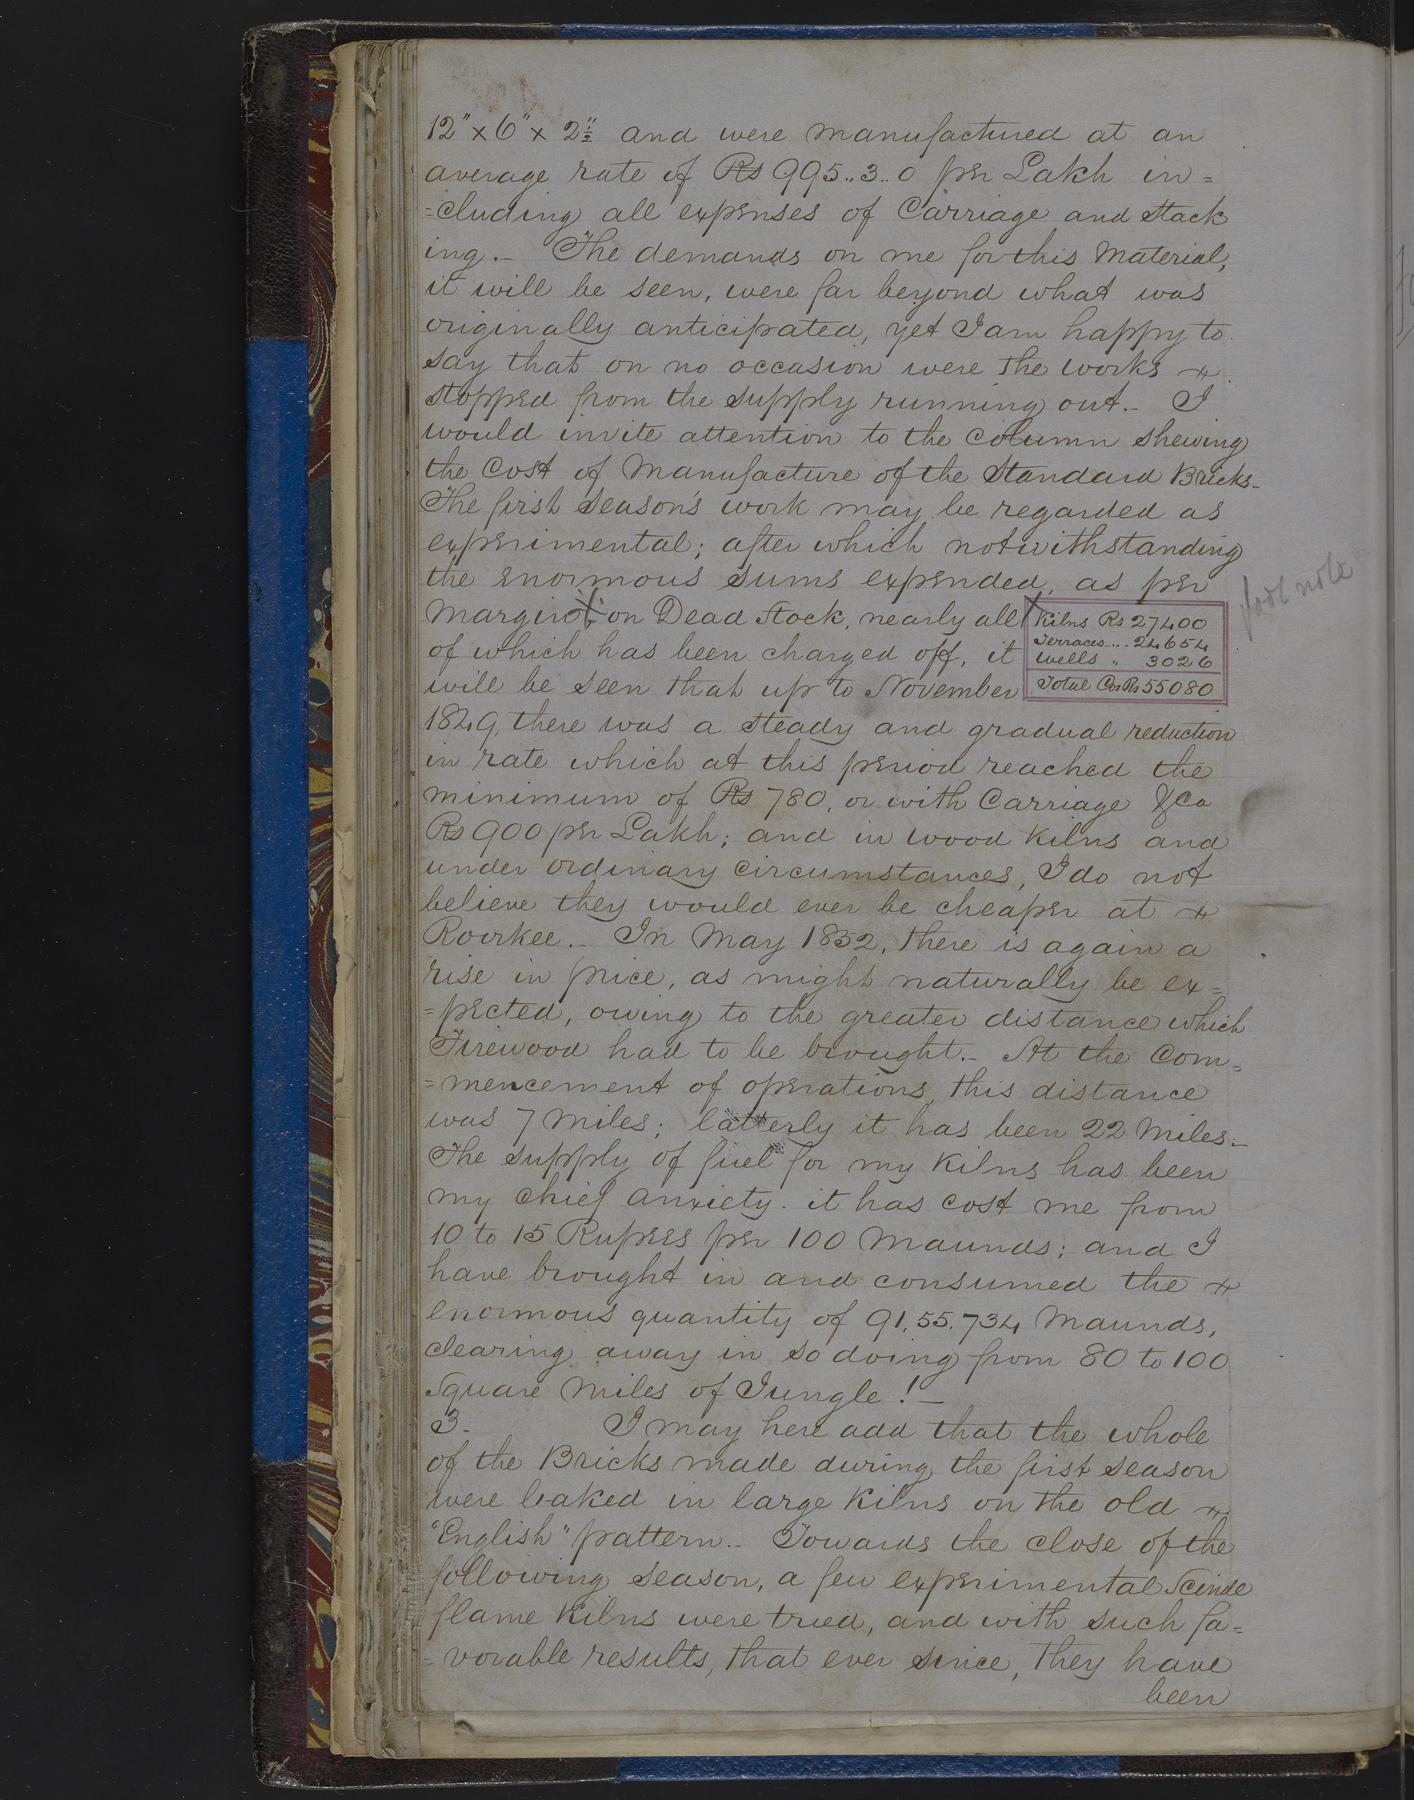 12" x 6" x 2½" and were manufactured at an
average rate of Rs 995..3..0 per Lakh in=
=cluding all expenses of Carriage and Stack
ing.- The demands on me for this Material,
it will be seen, were far beyond what was
originally anticipated, yet I am happy to
say that on no occasion were the works
stopped from the supply running out.- I
would invite attention to the column shewing
the Cost of Manufacture of the Standard Bricks-
The first season's work may be regarded as
experimental; after which notwithstanding
the enormous sums expended, as per
margin X, on Dead Stock, nearly all
of which has been charged off, it
will be seen that up to November
X Kilns Rs 27400
Terraces... 24654
Wells " 3026
Total Co's Rs 55080
foot note
1849, there was a steady and gradual reduction
in rate which at this period reached the
minimum of Rs 780, or with Carriage &Ca
Rs 900 per Lakh; and in wood Kilns and
under ordinary circumstances, I do not
believe they would ever be cheaper at
Roorkee.- In May 1852, there is again a
rise in price, as might naturally be ex=
=pected, owing to the greater distance which
Firewood had to be brought.- At the Com=
=mencement of operations, this distance
was 7 miles; latterly it has been 22 Miles.-
The supply of fuel for my Kilns has been
my chief anxiety. it has cost me from
10 to 15 Rupees per 100 Maunds; and I
have brought in and consumed the
enormous quantity of 91,55,734 Maunds,
clearing away in so doing from 80 to 100
Square Miles of Jungle!-
3. I may here add that the whole
of the Bricks made during the first season
were baked in large Kilns on the old
"English" pattern.- Towards the close of the
following season, a few experimental Scinde
flame Kilns were tried, and with such fa=
=vorable results, that ever since, they have
been